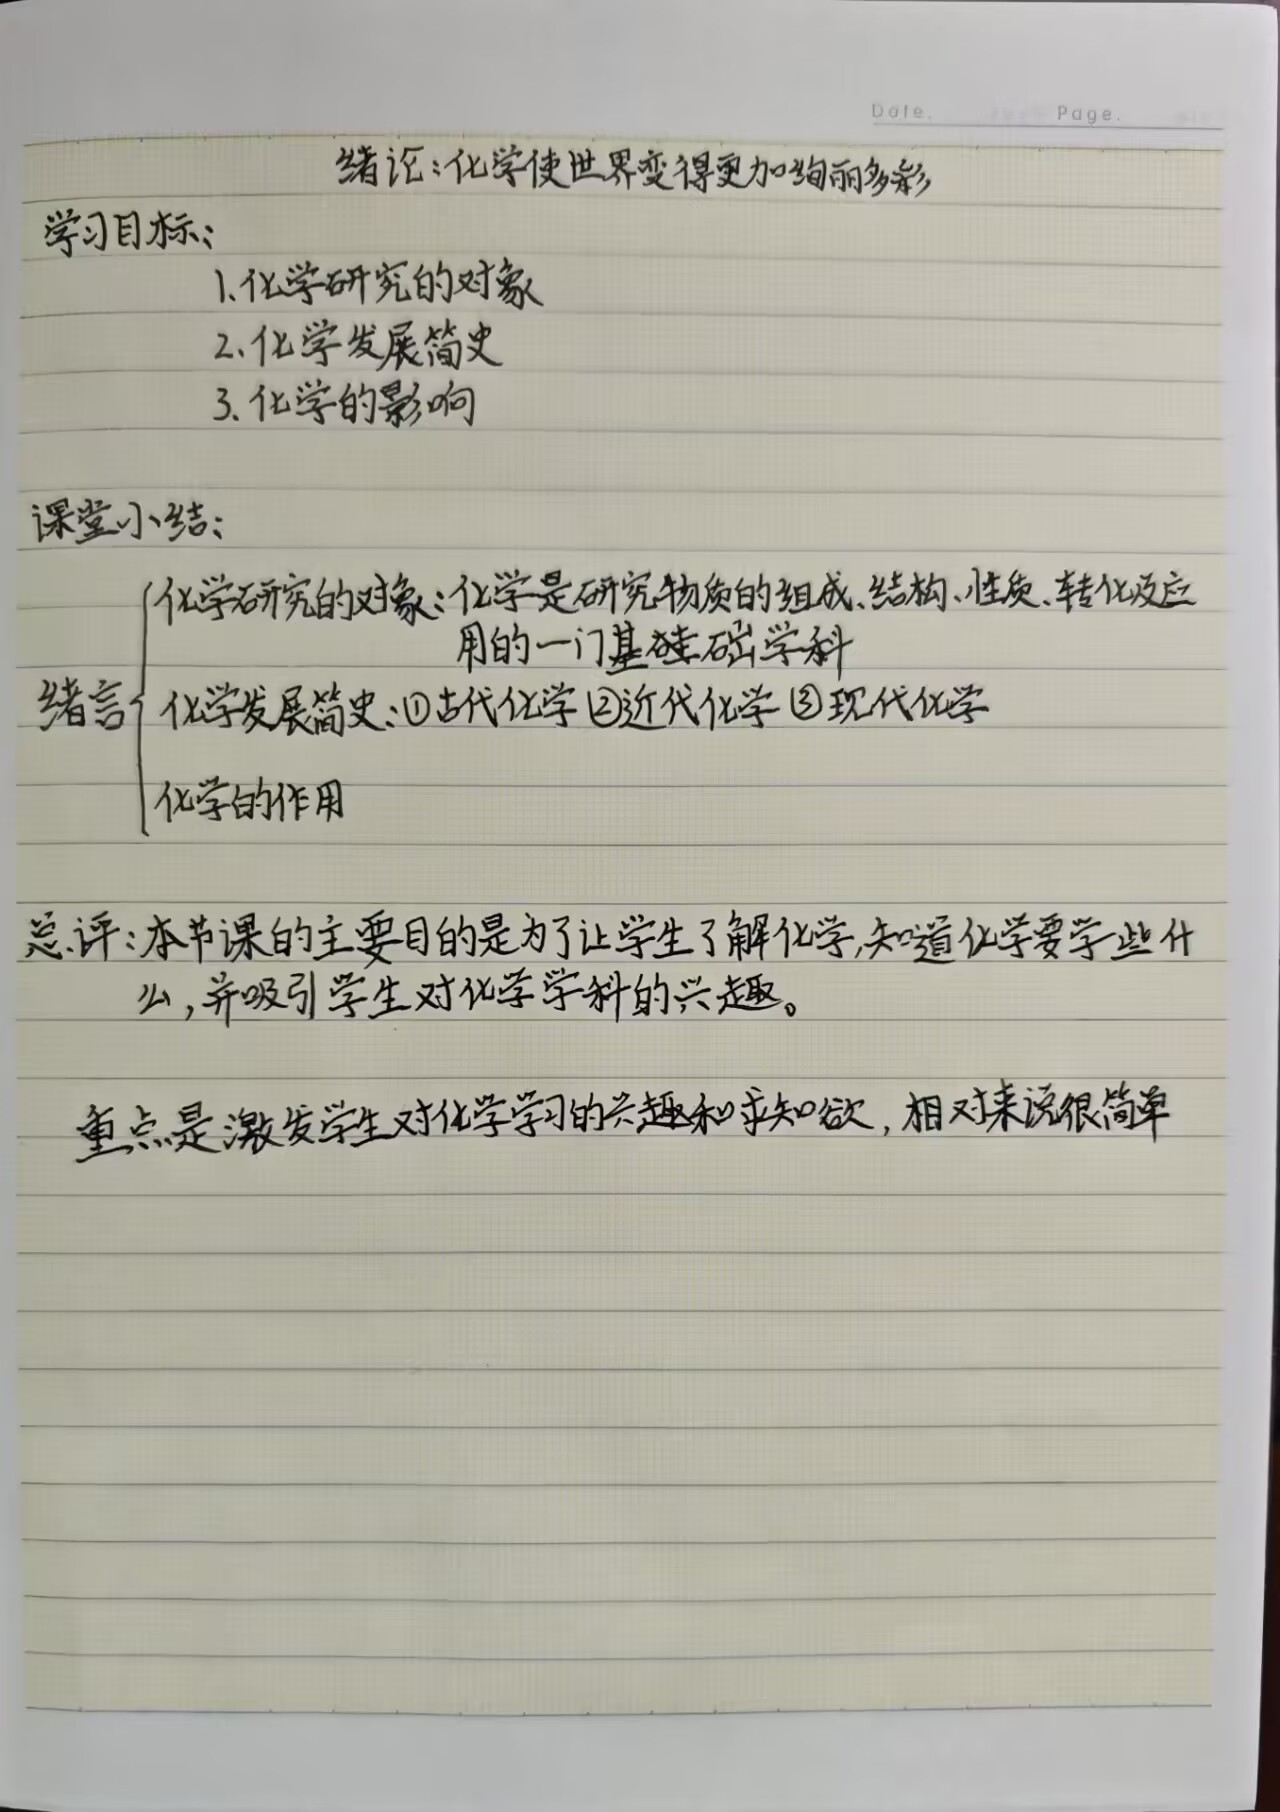 Date. Page.
绪论:化学使世界变得更加绚丽多彩
学习目标:
1.化学研究的对象
2.化学发展简史
3.化学的影响
课堂小结:
化学研究的对象:化学是研究物质的组成、结构、性质、转化及应
用的一门基础学科
绪言 化学发展简史:①古代化学②近代化学③现代化学
化学的作用
总评:本节课的主要目的是为了让学生了解化学,知道化学要学些什
么,并吸引学生对化学学科的兴趣。
重点是激发学生对化学学习的兴趣和求知欲,相对来说很简单